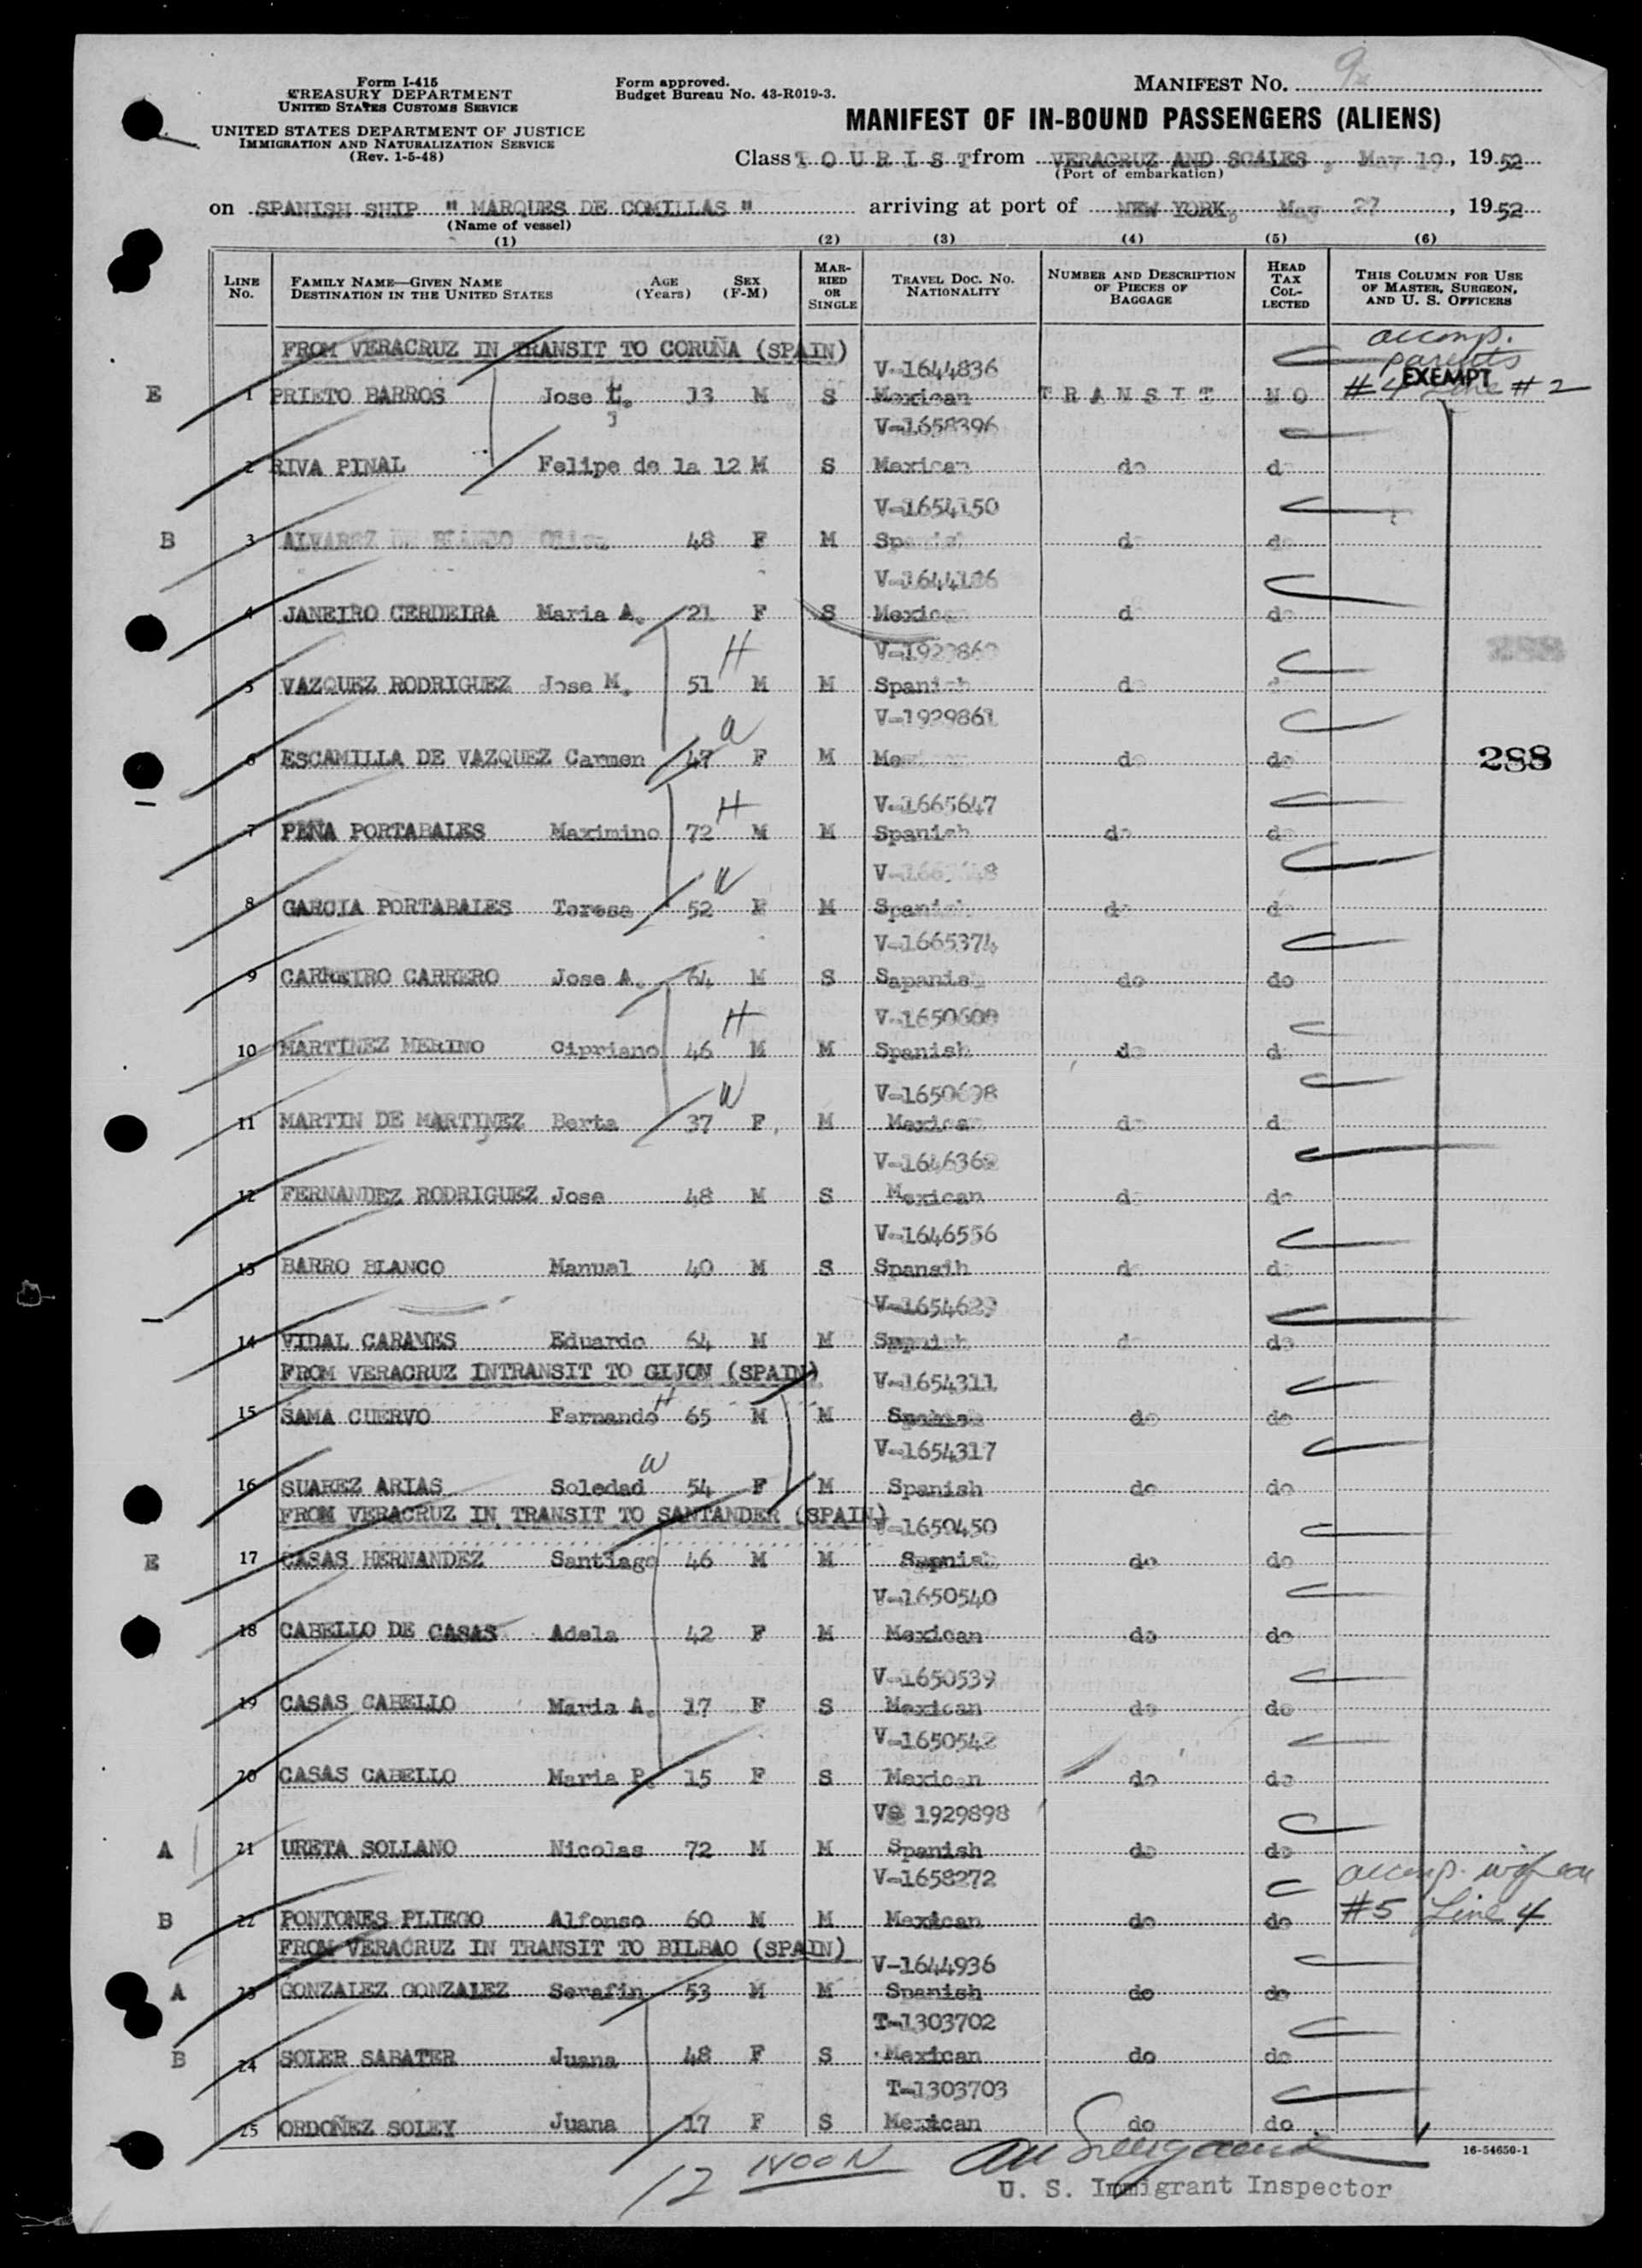 Form I-415
TREASURY DEPARTMENT
UNITED STATES CUSTOMS SERVICE
UNITED STATES DEPARTMENT OF JUSTICE
IMMIGRATION AND NATURALIZATION SERVICE
(Rev. 1-5-48)
Form approved.
Budget Bureau No. 43-R019-3.
MANIFEST No. 9
MANIFEST OF IN-BOUND PASSENGERS (ALIENS)
Class T O U R I S T from VERACRUZ AND SCALES, May 19, 1952
(Port of embarkation)
on SPANISH SHIP " MARQUES DE COMILLAS " arriving at port of NEW YORK, May 27, 1952
(Name of vessel)
(1) (2) (3) (4) (5) (6)
LINE No. FAMILY NAME—GIVEN NAME DESTINATION IN THE UNITED STATES AGE (Years) SEX (F-M) MARRIED OR SINGLE TRAVEL DOC. No. NATIONALITY NUMBER AND DESCRIPTION OF PIECES OF BAGGAGE HEAD TAX COLLECTED THIS COLUMN FOR USE OF MASTER, SURGEON, AND U. S. OFFICERS
FROM VERACRUZ IN TRANSIT TO CORUÑA (SPAIN)
accomp.
V-1644836 parents
E 1 PRIETO BARROS Jose 13 M S Mexican T R A N S I T N O #4 EXEMPT Line #2
V-1658396
2 RIVA PINAL Felipe de la 12 M S Mexican do d
V-1654150
B 3 ALVAREZ DE BLANCO 48 F M Spanish d do
4 JANEIRO CERDEIRA Maria A. 21 F S Mexican d do
288
H
5 VAZQUEZ RODRIGUEZ Jose M. 51 M M Spanish d
V-1929861
6 ESCAMILLA DE VAZQUEZ Carmen 47 F M do do 288
H V-1665647
7 PEÑA PORTABALES Maximino 72 M M Spanish do d
W
8 GARCIA PORTABALES Teresa 52 F M Spanish d d
V-1665374
9 CARREIRO CARRERO Jose A. 64 M S Sapanis do do
H
10 MARTINEZ MERINO Cipriano 46 M M Spanish do d
W V-1650698
11 MARTIN DE MARTINEZ Berta 37 F, M Mexican do d
12 FERNANDEZ RODRIGUEZ Jose 48 M S Mexican d do
V-1646556
13 BARRO BLANCO Manual 40 M S Spansih d d
V-1654629
14 VIDAL CARAMES Eduardo 64 M M d do
FROM VERACRUZ INTRANSIT TO GIJON (SPAIN)
V-1654311
15 SAMA CUERVO Fernando H 65 M M do do
V-1654317
W
16 SUAREZ ARIAS Soledad 54 F M Spanish do do
FROM VERACRUZ IN TRANSIT TO SANTANDER (SPAIN)
V-1650450
E 17 CASAS HERNANDEZ Santiago 46 M M do do
V-1650540
18 CABELLO DE CASAS Adela 42 F M Mexican do do
V-1650539
19 CASAS CABELLO Maria A. 17 F S Mexican do do
V-1650542
20 CASAS CABELLO Maria P. 15 F S Mexican do do
1929898
A 21 URETA SOLLANO Nicolas 72 M M Spanish do do
V-1658272 accomp.
B 22 PONTONES PLIEGO Alfonso 60 M M Mexican do do #5 Line 4
FROM VERACRUZ IN TRANSIT TO BILBAO (SPAIN)
V-1644936
A 23 GONZALEZ GONZALEZ Serafin 53 M M Spanish do do
T-1303702
B 24 SOLER SABATER Juana 48 F S Mexican do do
T-1303703
25 ORDOÑEZ SOLEY Juana 17 F S Mexican do do
16-54650-1
12 NOON
U. S. Immigrant Inspector